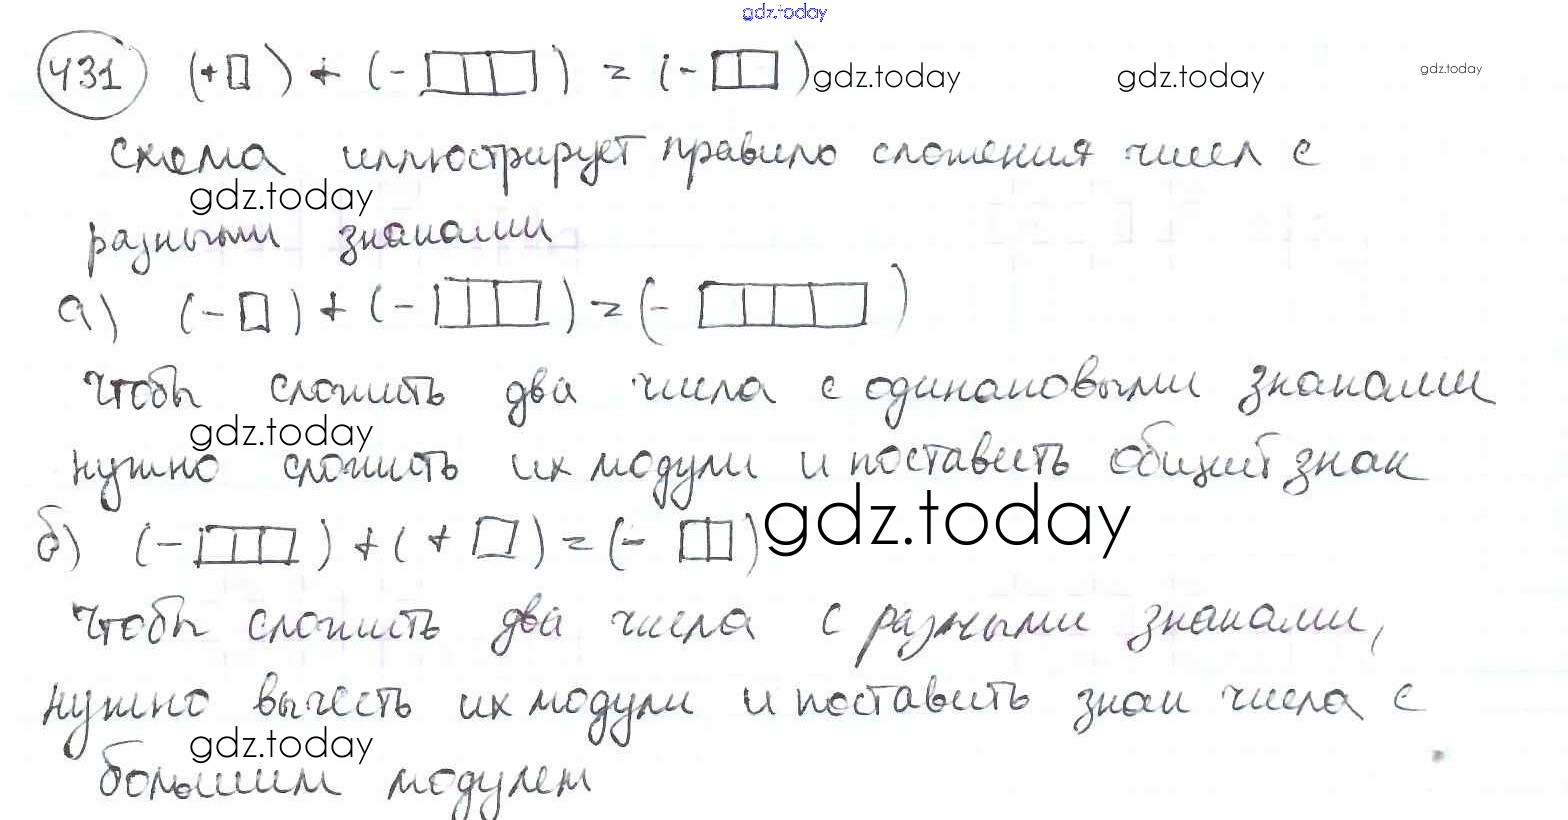 gdz.today
431 (+□) + (-□□□) = (-□□) gdz.today gdz.today gdz.today
схема иллюстрирует правило сложения чисел с
gdz.today
разными знаками
а) (-□) + (-□□□) = (-□□□□)
чтобы сложить два числа с одинаковыми знаками
gdz.today
нужно сложить их модули и поставить общий знак
б) (-□□□) + (+□) = (-□□) gdz.today
Чтобы сложить два числа с разными знаками,
нужно вычесть их модули и поставить знак числа с
gdz.today
большим модулем